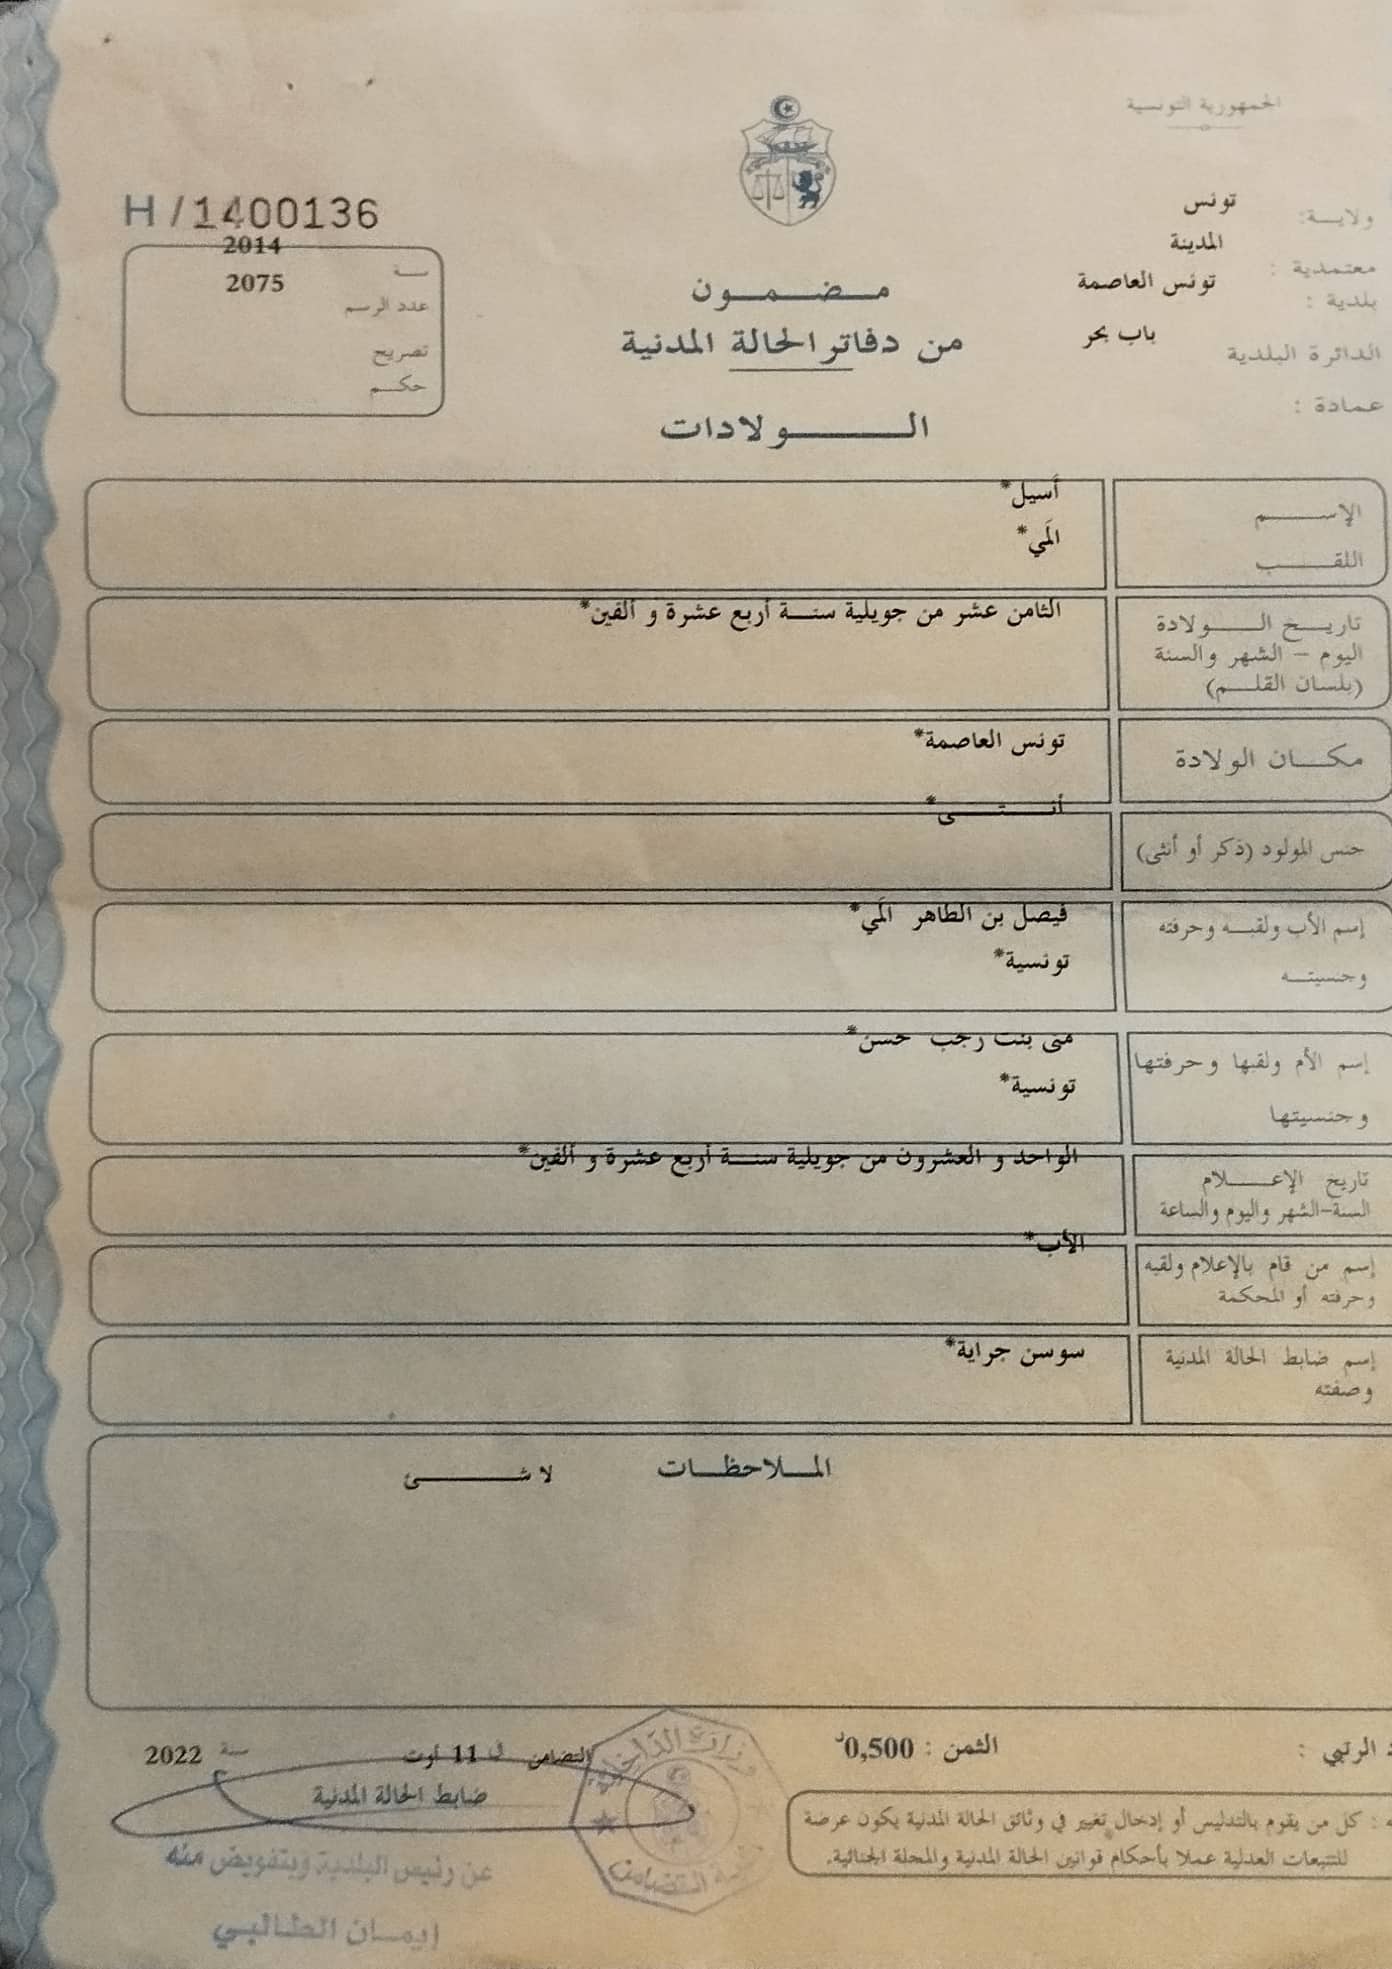 الجمهورية التونسية
ولاية: تونس
معتمدية : المدينة
بلدية : تونس العاصمة
الدائرة البلدية باب بحر
عمادة :
H /1400136
سنة 2014
عدد الرسم 2075
تصريح
حكم
مضمون
من دفاتر الحالة المدنية
الولادات
الإسم أسيل*
اللقب المَي*
تاريخ الولادة الثامن عشر من جويلية سنة أربع عشرة و ألفين*
اليوم – الشهر والسنة
(بلسان القلم)
مكان الولادة تونس العاصمة*
جنس المولود (ذكر أو أنثى) أنثى*
إسم الأب ولقبه وحرفته فيصل بن الطاهر المَي*
وجنسيته تونسية*
إسم الأم ولقبها وحرفتها منى بنت رجب حسن*
وجنسيتها تونسية*
تاريخ الإعلام الواحد و العشرون من جويلية سنة أربع عشرة و ألفين*
السنة-الشهر واليوم والساعة
إسم من قام بالإعلام ولقبه الأب*
وحرفته أو المحكمة
إسم ضابط الحالة المدنية سوسن جراية*
وصفته
الملاحظات لا شئ
الرتبي :
الثمن : 0,500د
التضامن في 11 أوت سنة 2022
ضابط الحالة المدنية
عن رئيس البلدية وبتفويض منه
إيمان الطالبي
وزارة الداخلية
التضامن
: كل من يقوم بالتدليس أو إدخال تغيير في وثائق الحالة المدنية يكون عرضة
للتتبعات العدلية عملا بأحكام قوانين الحالة المدنية والمجلة الجنائية.